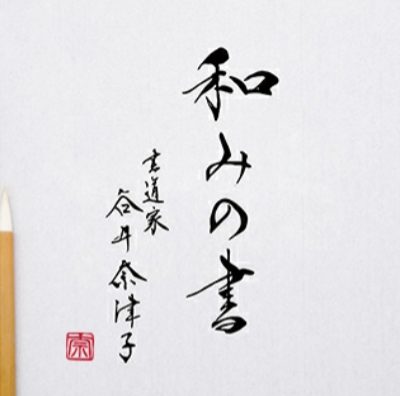 和みの書
書道家
谷井奈津子
奈